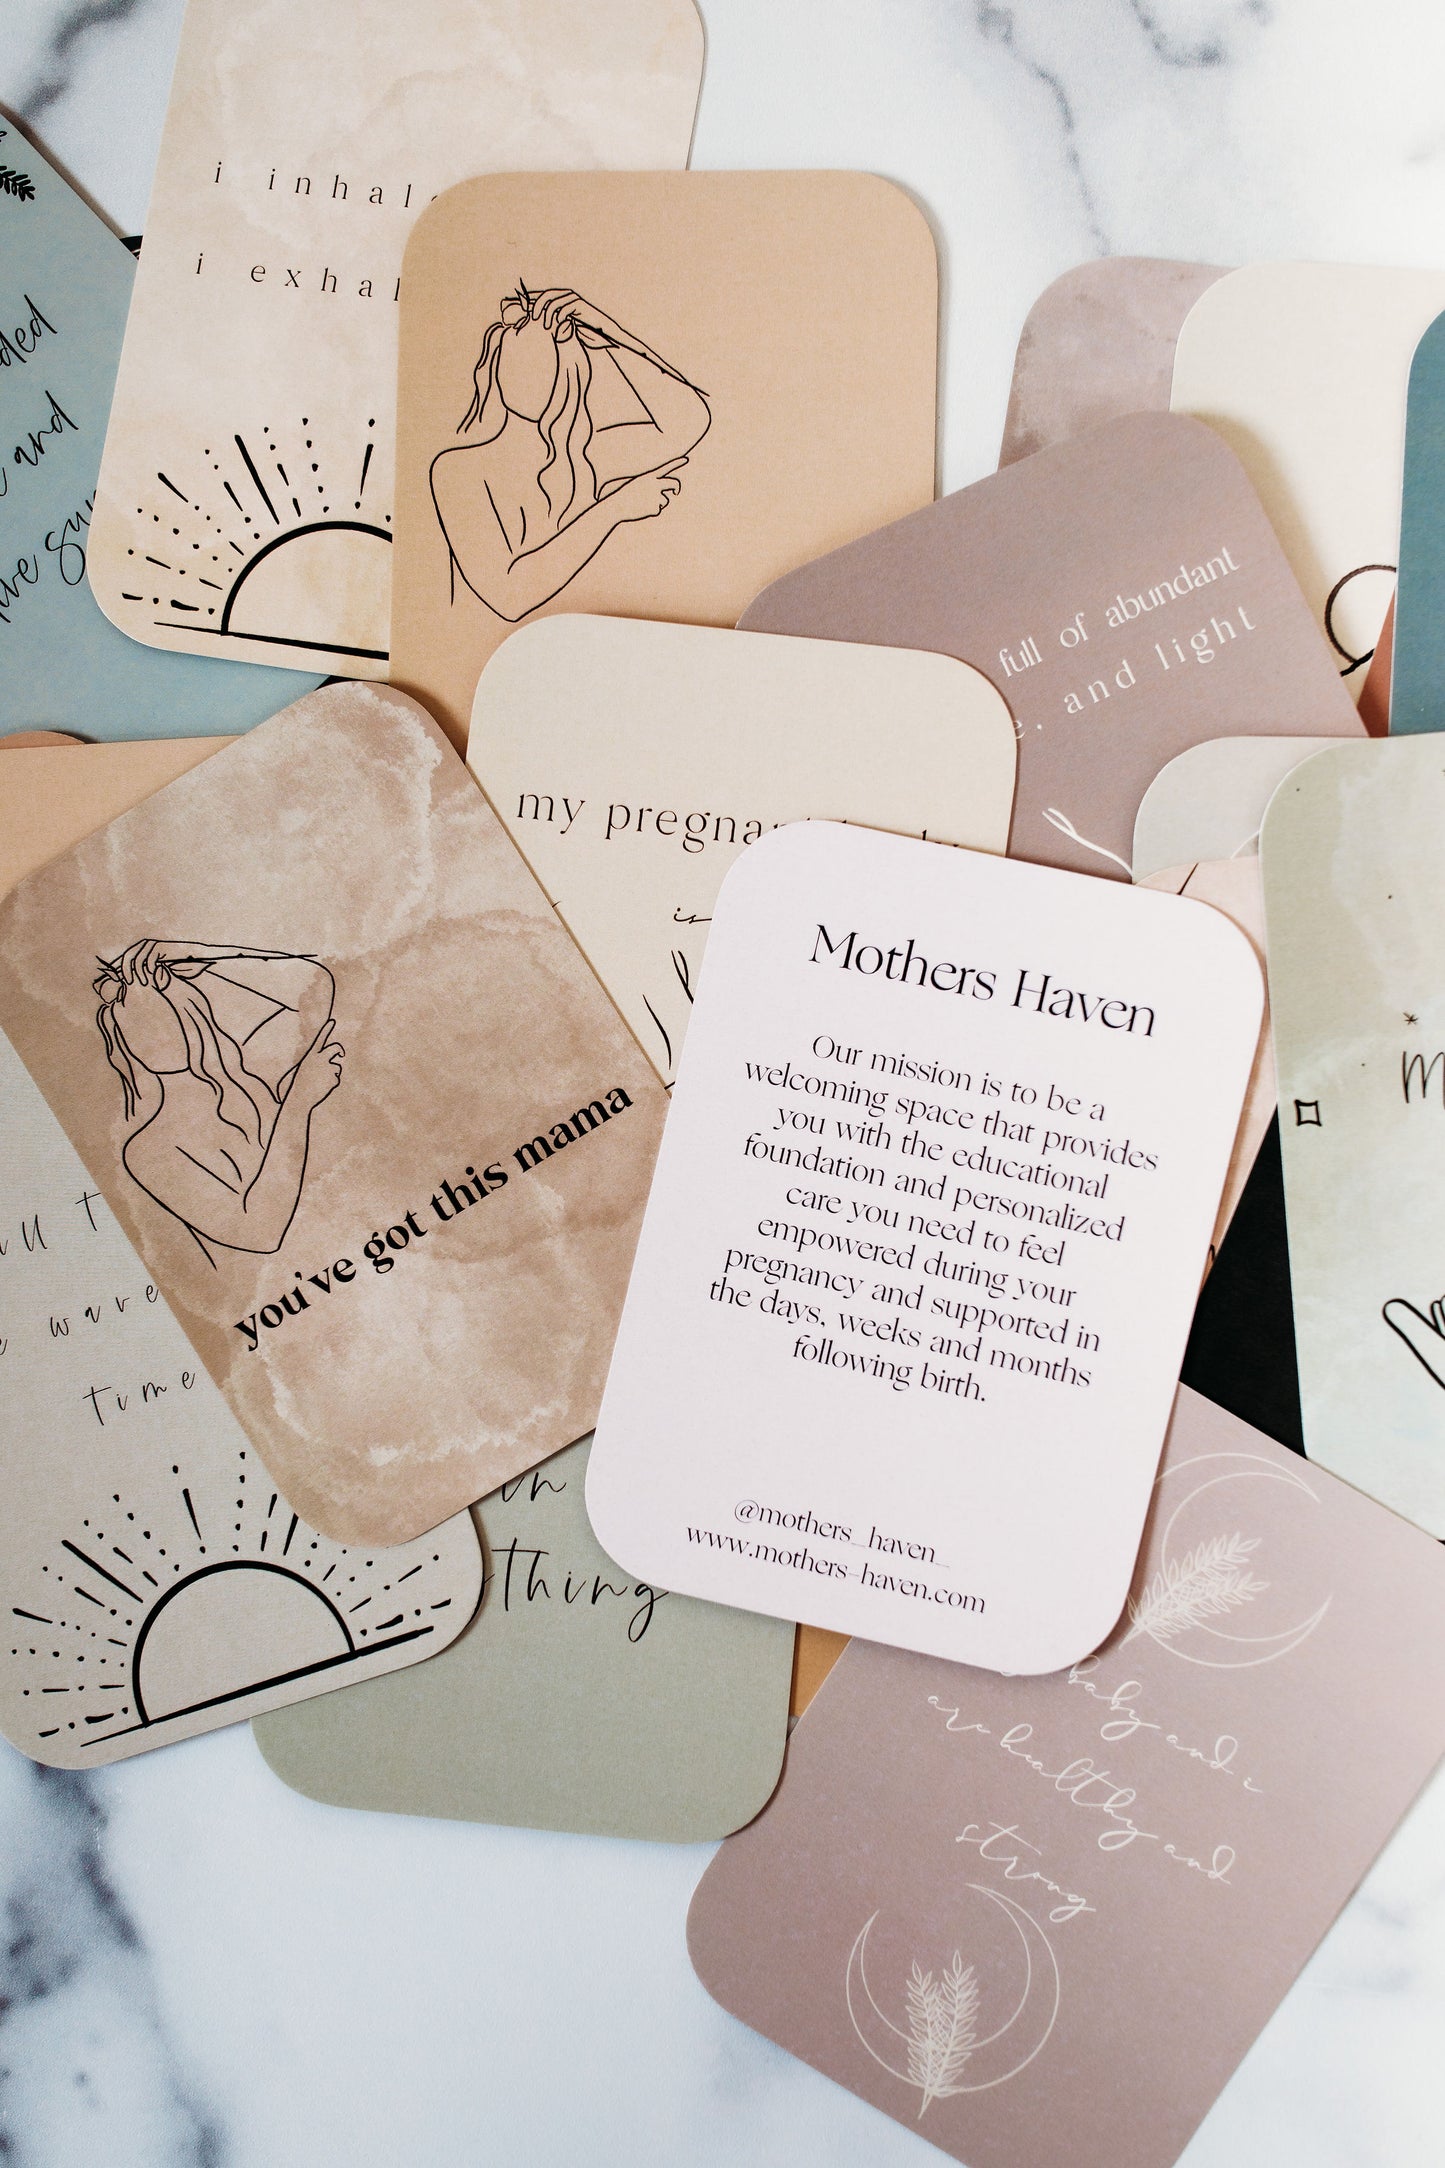 i
i exhal
and
full of abundant
and light
my
is
you've got this mama
Mothers Haven
Our mission is to be a
welcoming space that provides
you with the educational
foundation and personalized
care you need to feel
empowered during your
pregnancy and supported in
the days, weeks and months
following birth.
@mothers_haven_
www.mothers-haven.com
wave
time
in
thing
baby and i
are healthy and
strong